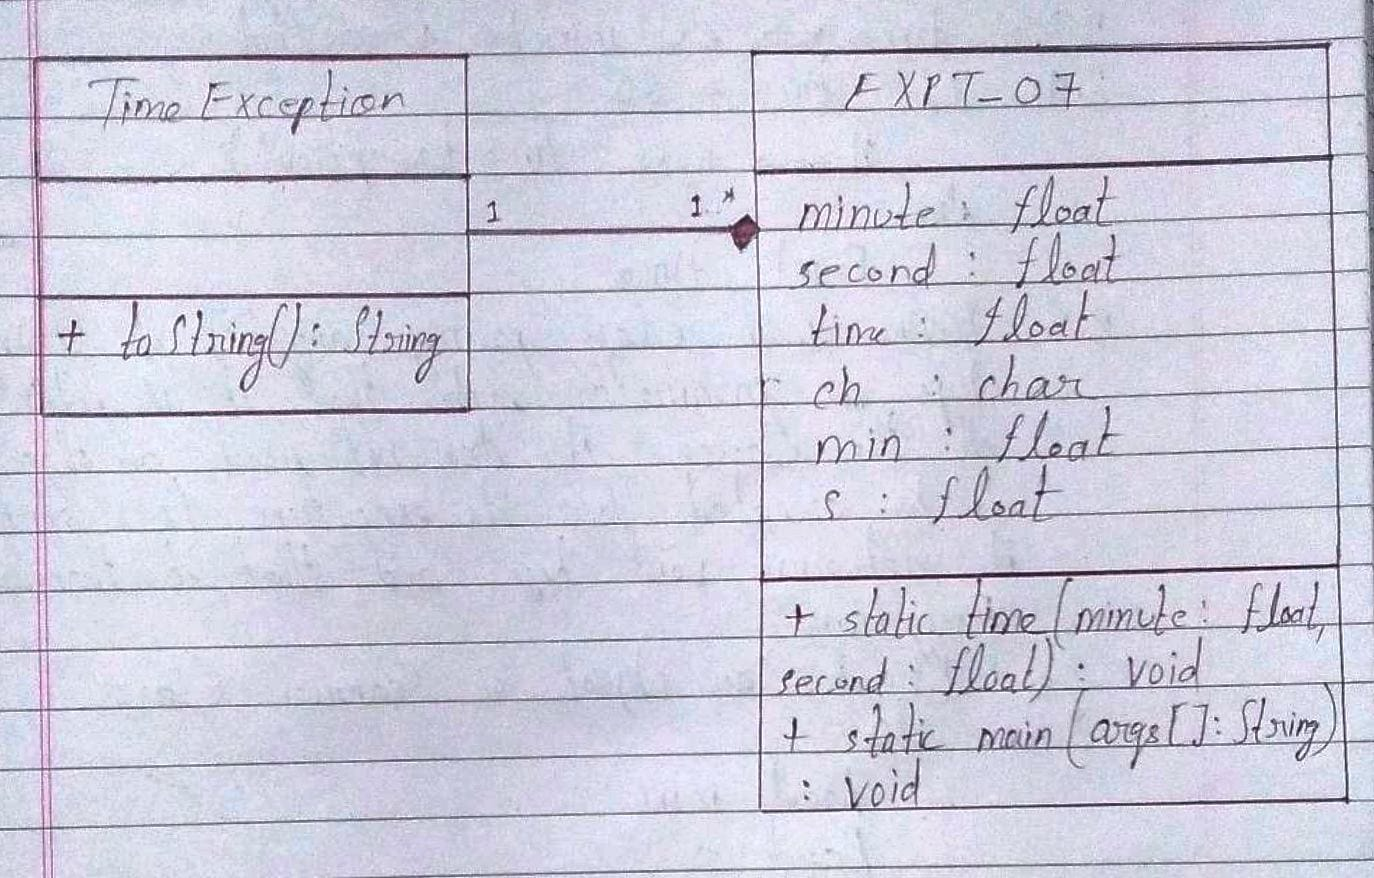 Time Exception
+ to String(): String
1 1..*
EXPT-07
minute : float
second : float
time : float
ch : char
min : float
s : float
+ static time (minute: float,
second: float) : void
+ static main (args[]: String)
: void